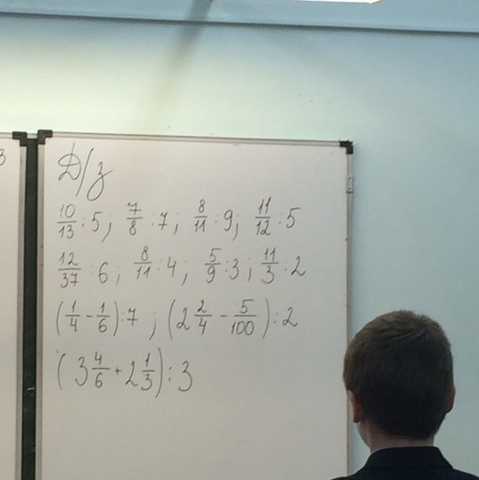 Д/з
10/13 : 5; 7/8 : 7; 8/11 : 9; 11/12 : 5
12/37 : 6; 8/11 : 4; 5/9 : 3; 11/3 : 2
(1/4 - 1/6) : 7; (2 2/4 - 5/100) : 2
(3 4/6 + 2 1/3) : 3